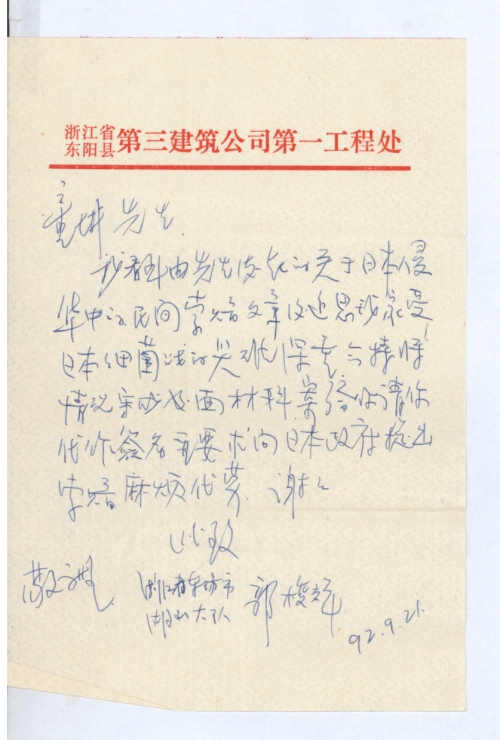 浙江省东阳县第三建筑公司第一工程处
童增 先生
我看到由先生发起的关于日本侵
华中的民间索赔文章后追思我家受
日本细菌战的灾难深重今特将
情况写成书面材料寄给你请你
代作签名并要求向日本政府提出
索赔麻烦代劳。谢谢
此致
敬礼
浙江省东阳市
湖山大队
92.9.21.